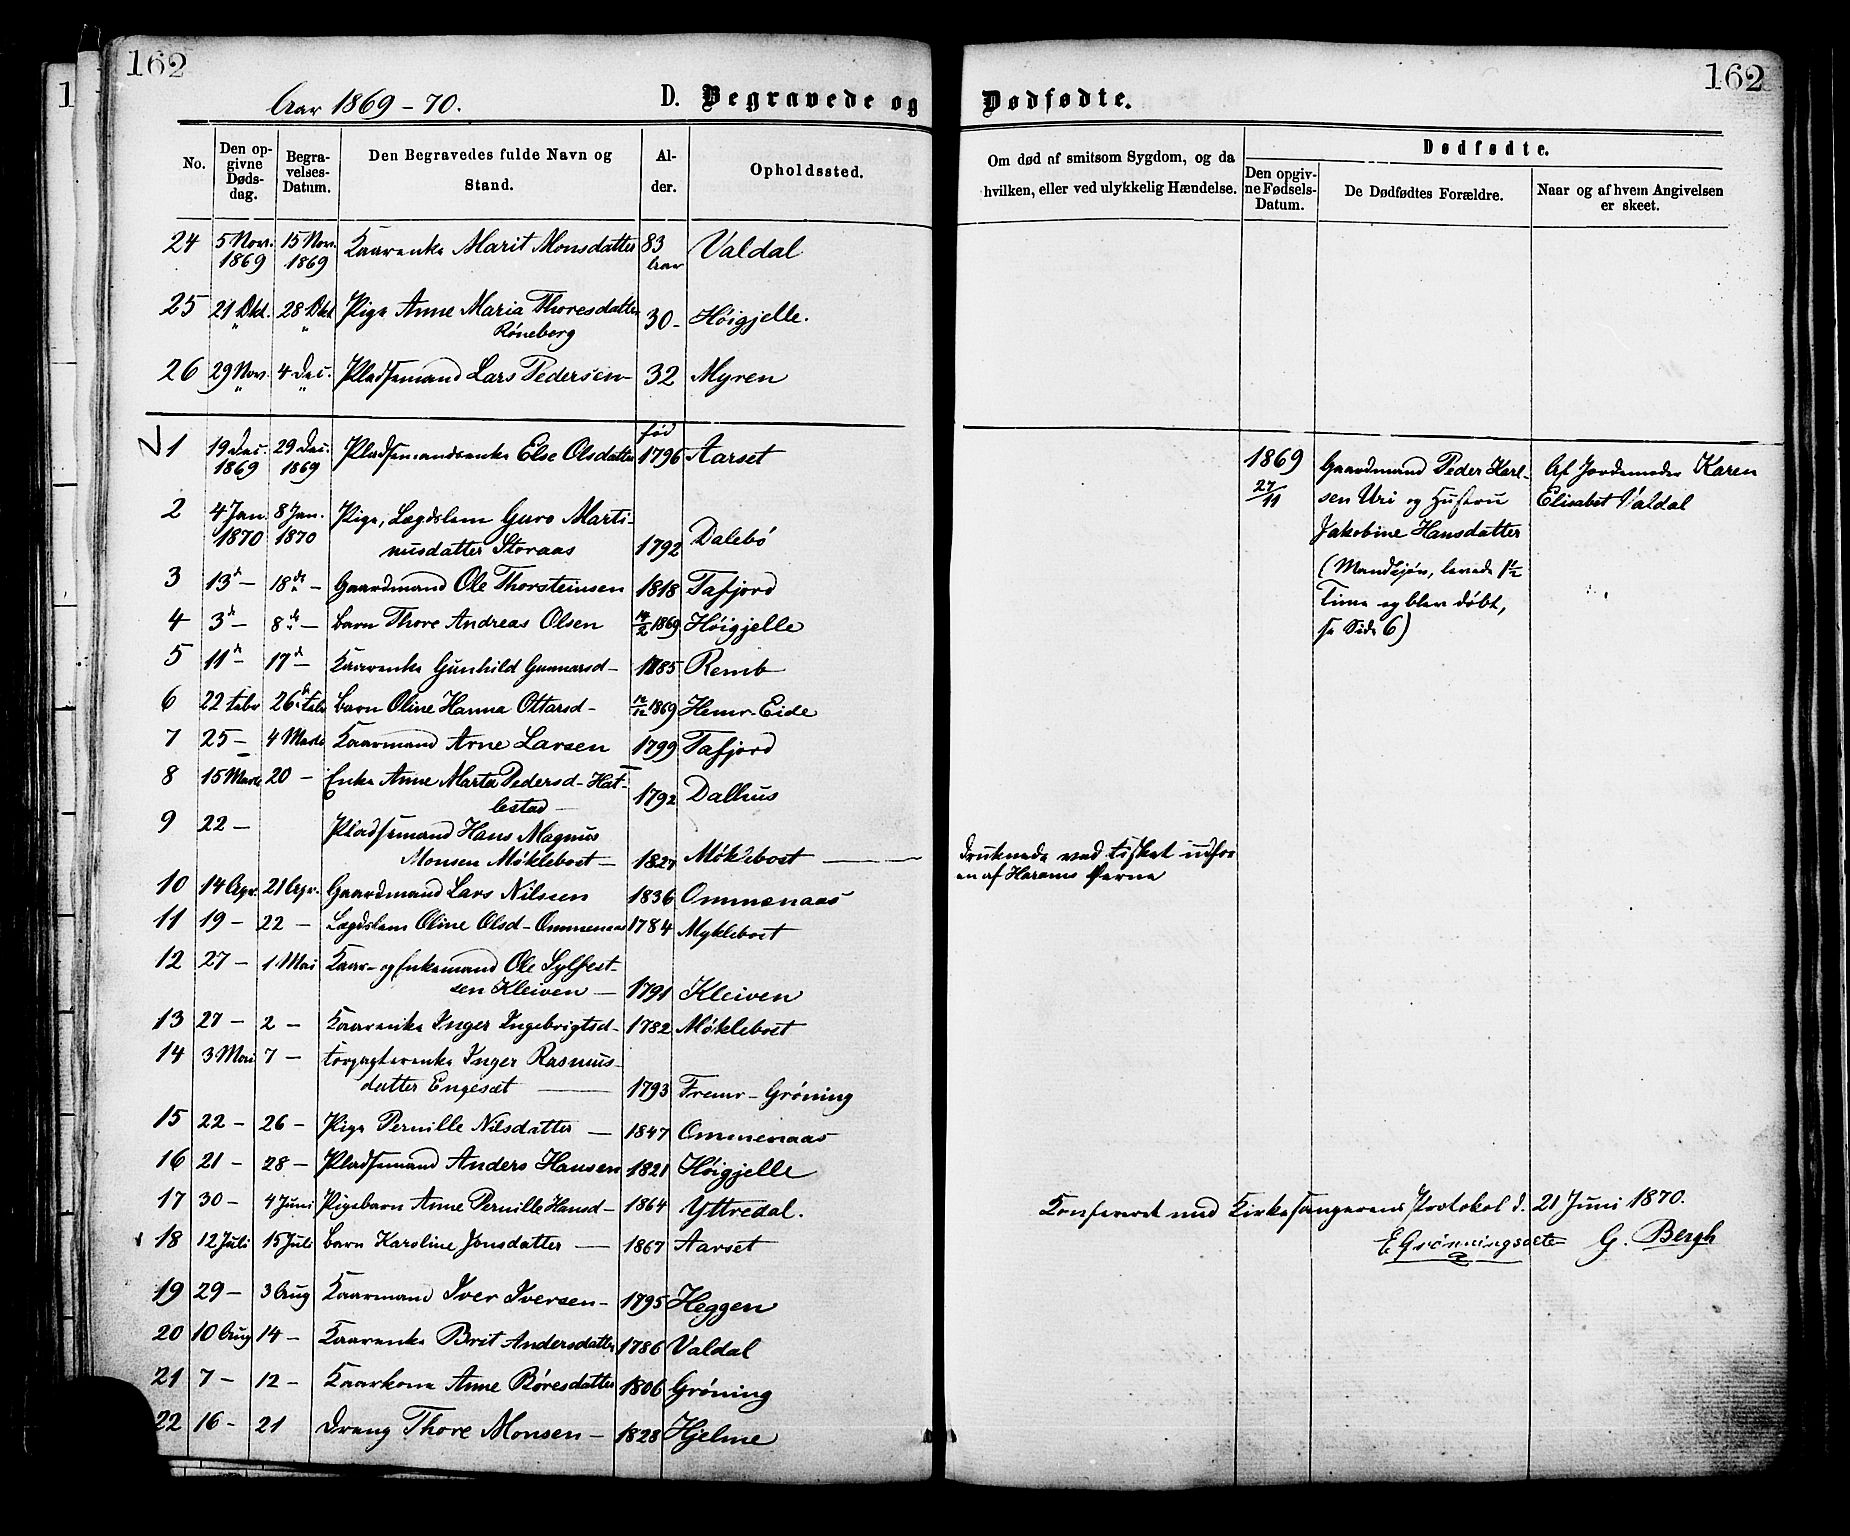 162
162
Aar 1869-70.
D. Begravede og Dødfødte.
No.
Den opgivne Dødsdag.
Begravelses-Datum.
Den Begravedes fulde Navn og Stand.
Alder.
Opholdssted.
Om død af smitsom Sygdom, og da hvilken, eller ved ulykkelig Hændelse.
Dødfødte.
Den opgivne Fødsels-Datum.
De Dødfødtes Forældre.
Naar og af hvem Angivelsen er skeet.
24 5 Nov. 1869 15 Nov. 1869 Kaarenke Marit Monsdatter 83 Aar Valdal
25 21 Okt. " 28 Okt " Pige Anne Maria Thoresdatter Røneberg 30- Høigjelle.
26 29 Nov. " 4 Dec. " Pladsemand Lars Pedersen- 32 Myren
1 19 Dec. 1869 29 Dec. 1869 Pladsemandsenke Else Olsdatter fød 1796 Aarset
2 4 Jan. 1870 8 Jan. 1870 Pige, Lægdslem Guro Marti-
nusdatter Storaas 1792 Dalebø
3 13de - 18de - Gaardmand Ole Thorsteinsen 1818 Tafjord
4 3de - 8de - Barn Thore Andreas Olsen 1869 Høigjelle
5 11de - 17de - Kaarenke Gunhild Gunnarsd- 1785 Remb
6 22 Febr 26de Febr Barn Oline Hanna Ottarsd- 1869 Hemr-Eide
7 25 - 4 Marts Kaarmand Arne Larsen 1799 Tafjord
8 15 Marts 20 - Enke Anne Marta Pedersd- Hat-
lestad 1792 Dalhus
9 22 - Pladsemand Hans Magnus
Monsen Møklebost - 1827 Møklebost
druknede ved Fisket udfor
en af Harams Øerne
10 14 Apr. 21 Apr. Gaardmand Lars Nilssen 1836 Ommenaas
11 19 - 22 - Lægdslem Oline Olsd- Ommenaas 1784 Myklebost
12 27 - 1 Mai Kaar- og Enkemand Ole Sylfest-
sen Kleiven - 1791 Kleiven
13 27 - 2 - Kaarenke Inger Ingebrigtsd- 1782 Møklebost
14 3 Mai 7 - Forpagterenke Inger Rasmus-
datter Engeset 1793 Fremr-Grøning
15 22 - 26 - Pige Pernille Nilsdatter - 1847 Ommenaas
16 21 - 28 - Pladsemand Anders Hansen 1821 Høigjelle
17 30 - 4 Juni Pigebarn Anne Pernille Hansd- 1864 Yttredal.
18 12 Juli 15 Juli Barn Karoline Jonsdatter - 1867 Aarset
19 29 - 3 Aug Kaarmand Iver Iversen- 1795 Heggen
20 10 Aug 14 - Kaarenke Brit Andersdatter 1786 Valdal
21 7 - 12 - Kaarkone Anne Røresdatter 1806 Grøning
22 16 - 21 Dreng Thore Monsen - 1828 Hjelme
1869
27/11
Gaardmand Peder Karl-
sen Uri og Hustru
Jakobine Hansdatter
(Mandkjøn, levede 1 1/2
Time og blev døbt,
se Side 6)
Af Jordemoder Karen
Elisabet Valdal
Konfereret med Kirkesangerens Protokol d. 21 Juni 1870.
E Grønningsæter G. Bergh